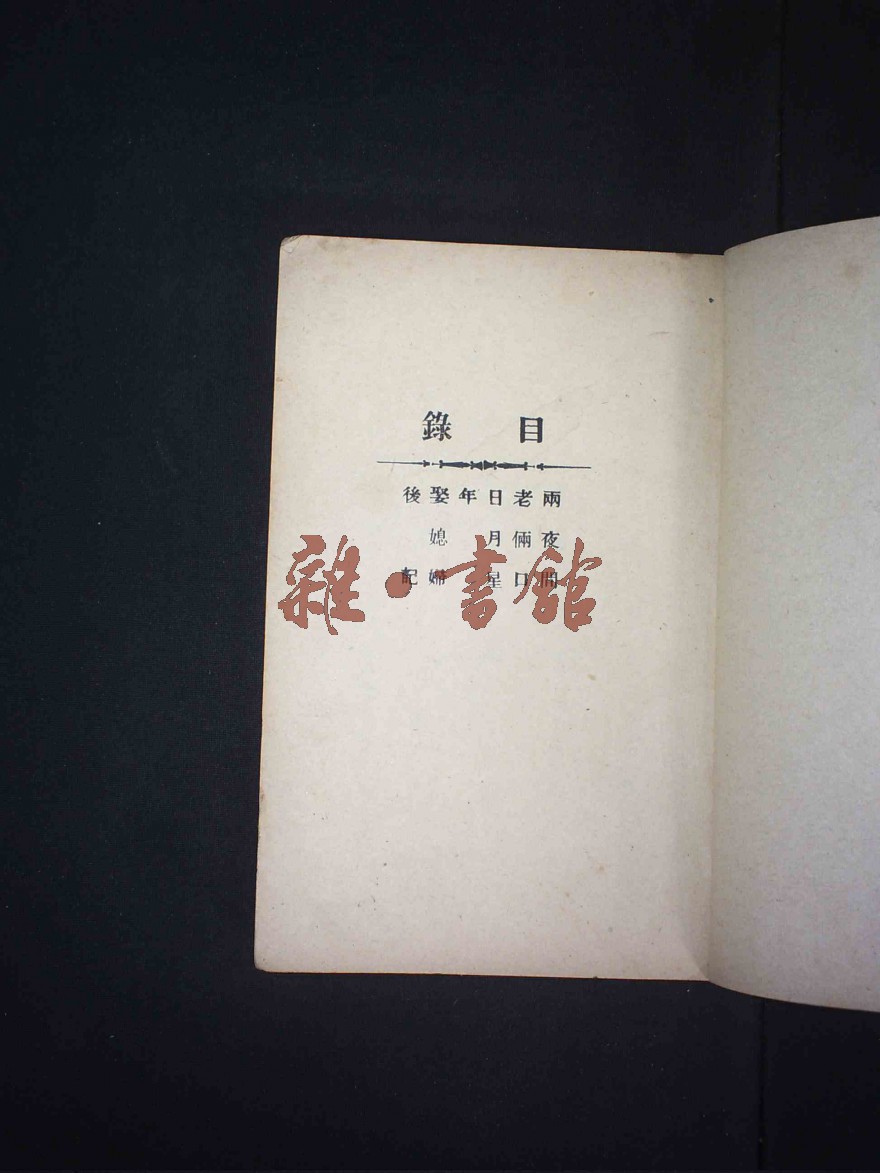 目錄
兩夜間
老倆口
日月星
年
娶媳婦
後記
雜·書館